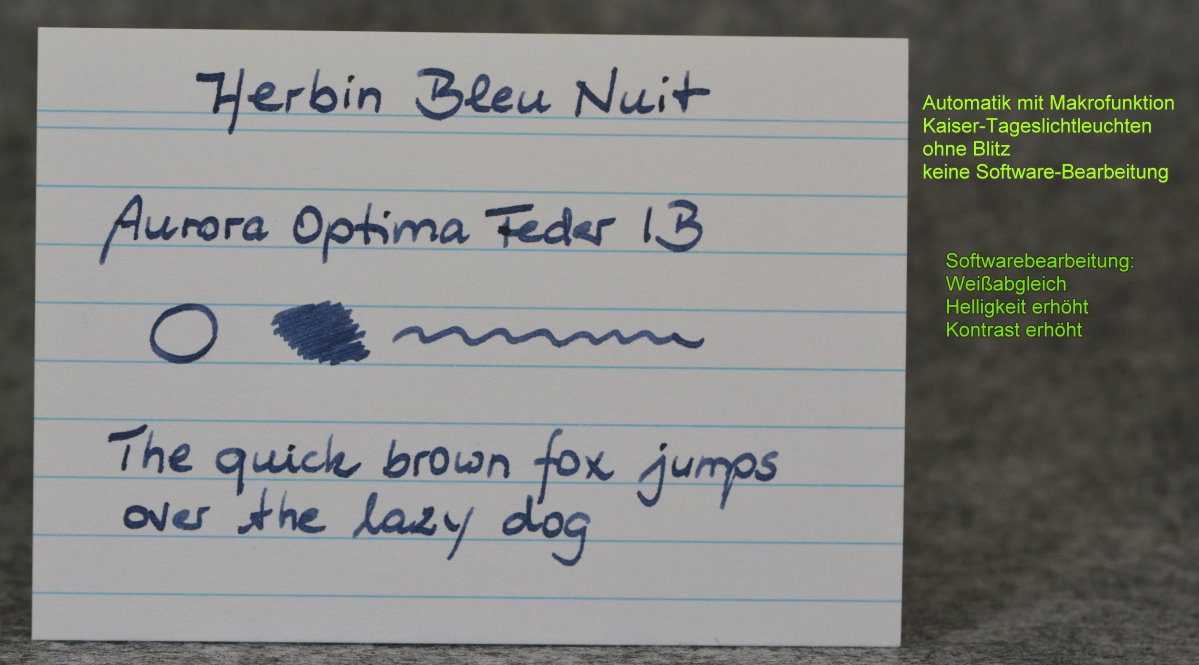 Herbin Bleu Nuit
Aurora Optima Feder IB
The quick brown fox jumps
over the lazy dog
Automatik mit Makrofunktion
Kaiser-Tageslichtleuchten
ohne Blitz
keine Software-Bearbeitung
Softwarebearbeitung:
Weißabgleich
Helligkeit erhöht
Kontrast erhöht